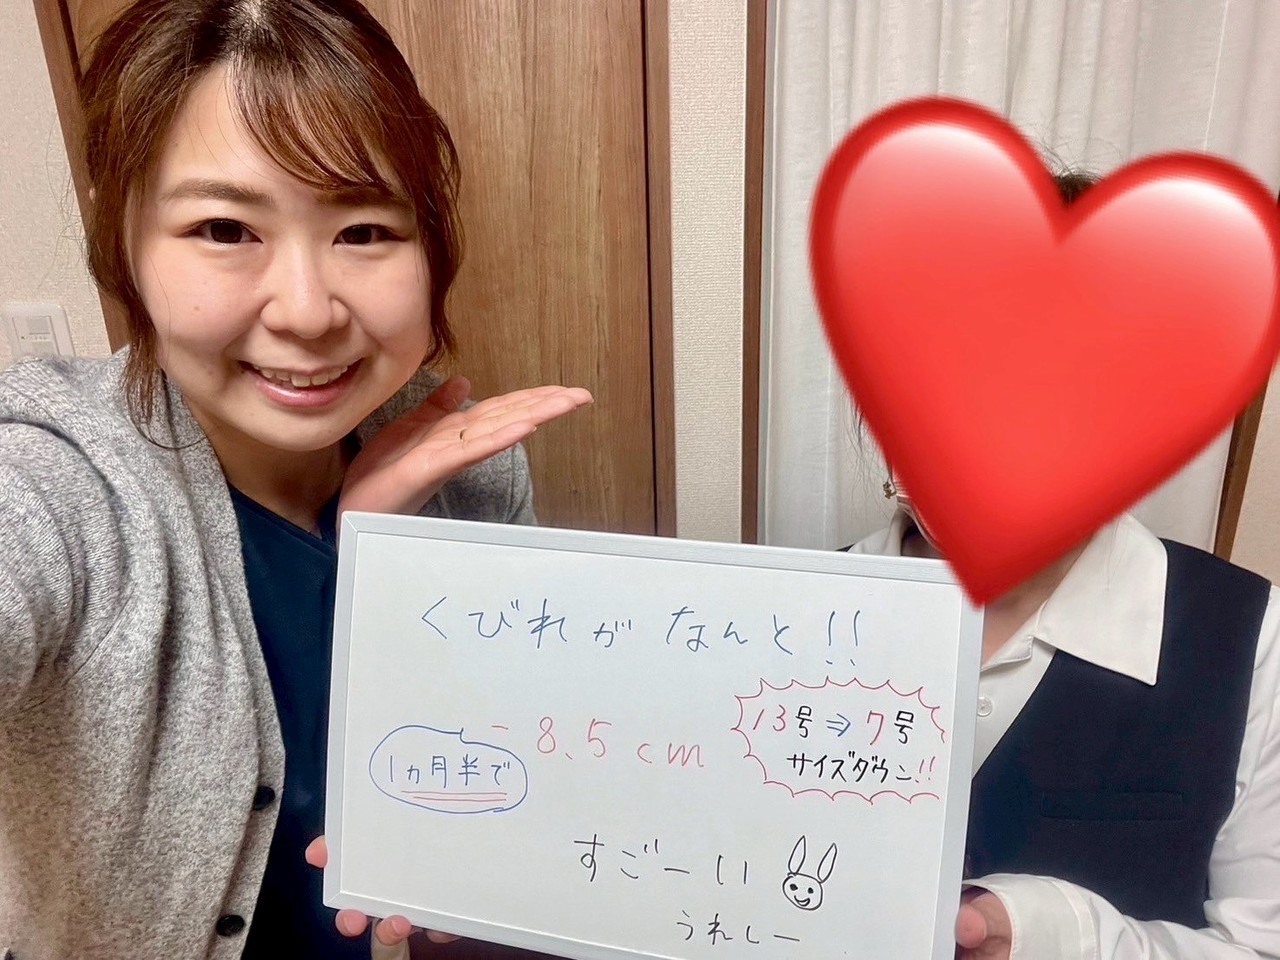 くびれがなんと!!
-8.5cm
1ヵ月半で
13号⇒7号
サイズダウン!!
すごーい
うれしー